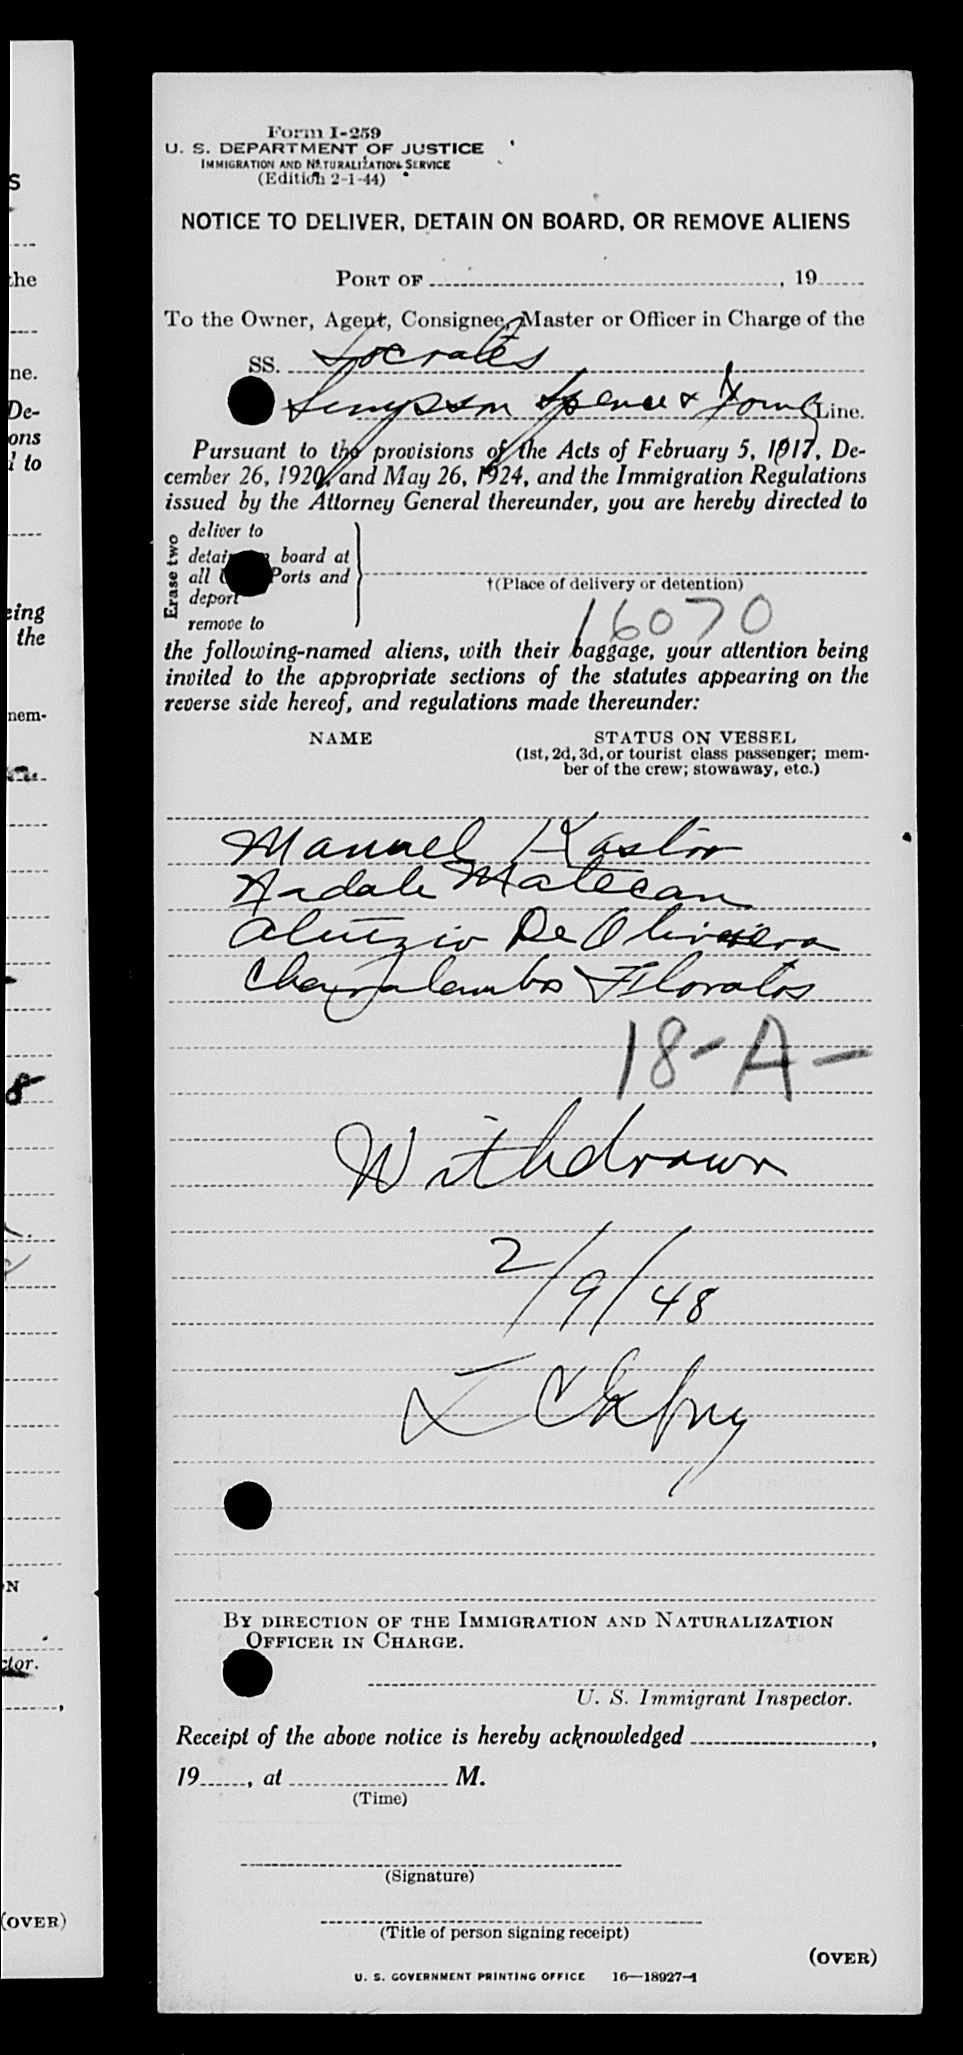 Form I-259
U. S. DEPARTMENT OF JUSTICE
IMMIGRATION AND NATURALIZATION SERVICE
(Edition 2-1-44)
NOTICE TO DELIVER, DETAIN ON BOARD, OR REMOVE ALIENS
PORT OF , 19
To the Owner, Agent, Consignee, Master or Officer in Charge of the
SS. Socrates
Simpson Spence & Young Line.
Pursuant to the provisions of the Acts of February 5, 1917, De-
cember 26, 1920, and May 26, 1924, and the Immigration Regulations
issued by the Attorney General thereunder, you are hereby directed to
Erase two
deliver to
board at
all Ports and
deport
remove to
†(Place of delivery or detention)
16070
the following-named aliens, with their baggage, your attention being
invited to the appropriate sections of the statutes appearing on the
reverse side hereof, and regulations made thereunder:
NAME STATUS ON VESSEL
(1st, 2d, 3d, or tourist class passenger; mem-
ber of the crew; stowaway, etc.)
Manuel Kastor
Matecan
De Oliviera
Charalambos Floratos
18-A-
Withdrawn
2/9/48
BY DIRECTION OF THE IMMIGRATION AND NATURALIZATION
OFFICER IN CHARGE.
U. S. Immigrant Inspector.
Receipt of the above notice is hereby acknowledged ,
19 , at M.
(Time)
(Signature)
(Title of person signing receipt)
(OVER)
U. S. GOVERNMENT PRINTING OFFICE 16—18927-1
(OVER)